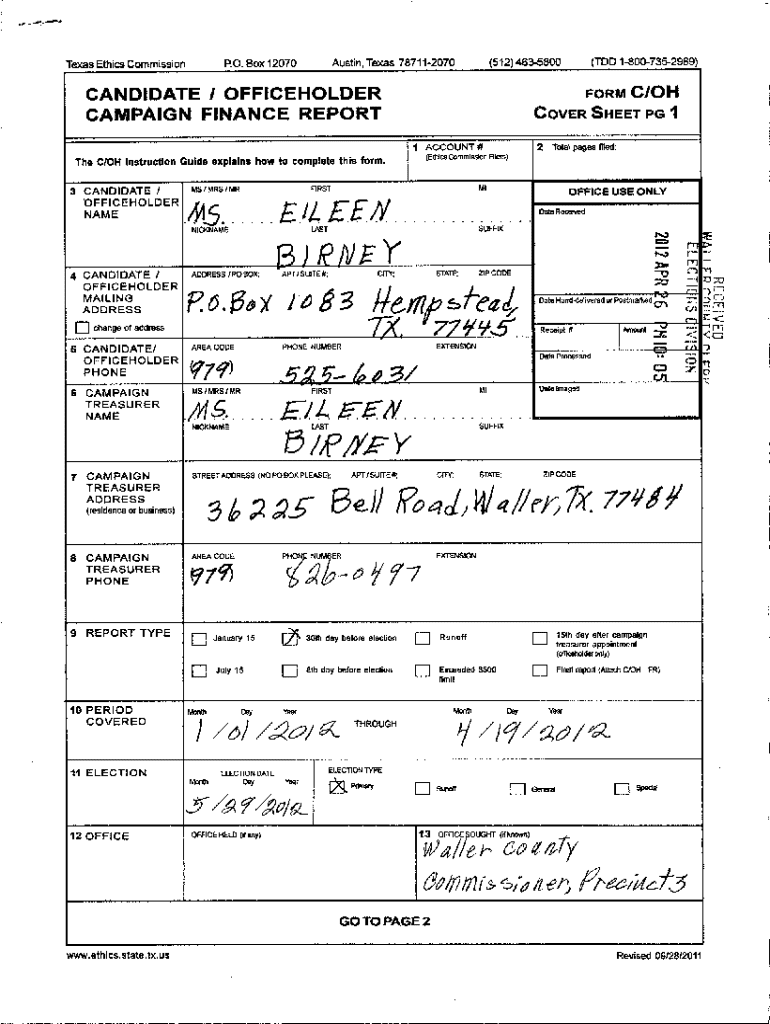 Texas Ethics Commission P.O. Box 12070 Austin, Texas 78711-2070 (512) 463-5800 (TDD 1-800-735-2989)
CANDIDATE / OFFICEHOLDER
CAMPAIGN FINANCE REPORT
FORM C/OH
COVER SHEET PG 1
The C/OH Instruction Guide explains how to complete this form.
1 ACCOUNT #
(Ethics Commission Filers)
2 Total pages filed:
3 CANDIDATE / OFFICEHOLDER NAME
MS / MRS / MR FIRST MI
MS. EILEEN
NICKNAME LAST SUFFIX
BIRNEY
OFFICE USE ONLY
Date Received
RECEIVED
WALLER COUNTY CLERK
ELECTIONS DIVISION
2012 APR 26 PM 10: 05
Date Hand-delivered or Postmarked
Receipt # Amount
Date Processed
Date Imaged
4 CANDIDATE / OFFICEHOLDER MAILING ADDRESS
change of address
ADDRESS / PO BOX; APT / SUITE #; CITY; STATE; ZIP CODE
P.O. Box 1083 Hempstead,
TX. 77445
5 CANDIDATE/ OFFICEHOLDER PHONE
AREA CODE PHONE NUMBER EXTENSION
(979) 525-6031
6 CAMPAIGN TREASURER NAME
MS / MRS / MR FIRST MI
MS. EILEEN
NICKNAME LAST SUFFIX
BIRNEY
7 CAMPAIGN TREASURER ADDRESS
(residence or business)
STREET ADDRESS (NO PO BOX PLEASE); APT / SUITE #; CITY; STATE; ZIP CODE
36225 Bell Road, Waller, TX. 77484
8 CAMPAIGN TREASURER PHONE
AREA CODE PHONE NUMBER EXTENSION
(979) 826-0497
9 REPORT TYPE
January 15 X 30th day before election Runoff 15th day after campaign treasurer appointment (officeholder only)
July 15 8th day before election Exceeded $500 limit Final report (Attach C/OH - FR)
10 PERIOD COVERED
Month Day Year THROUGH Month Day Year
1 / 01 / 2012 4 / 19 / 2012
11 ELECTION
ELECTION DATE ELECTION TYPE
Month Day Year X Primary Runoff General Special
5 / 29 / 2012
12 OFFICE
OFFICE HELD (if any)
13 OFFICE SOUGHT (if known)
Waller County
Commissioner, Precinct 3
GO TO PAGE 2
www.ethics.state.tx.us Revised 06/28/2011